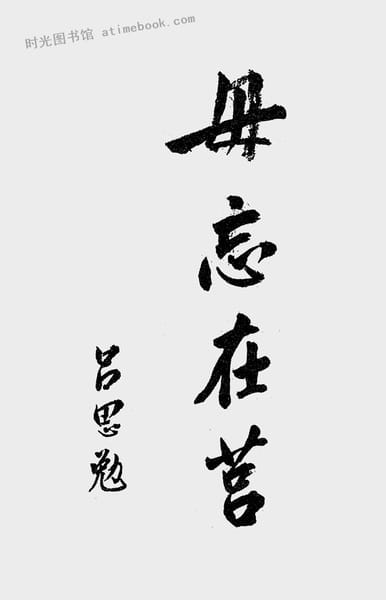 时光图书馆 atimebook.com
毋忘在莒
吕思勉